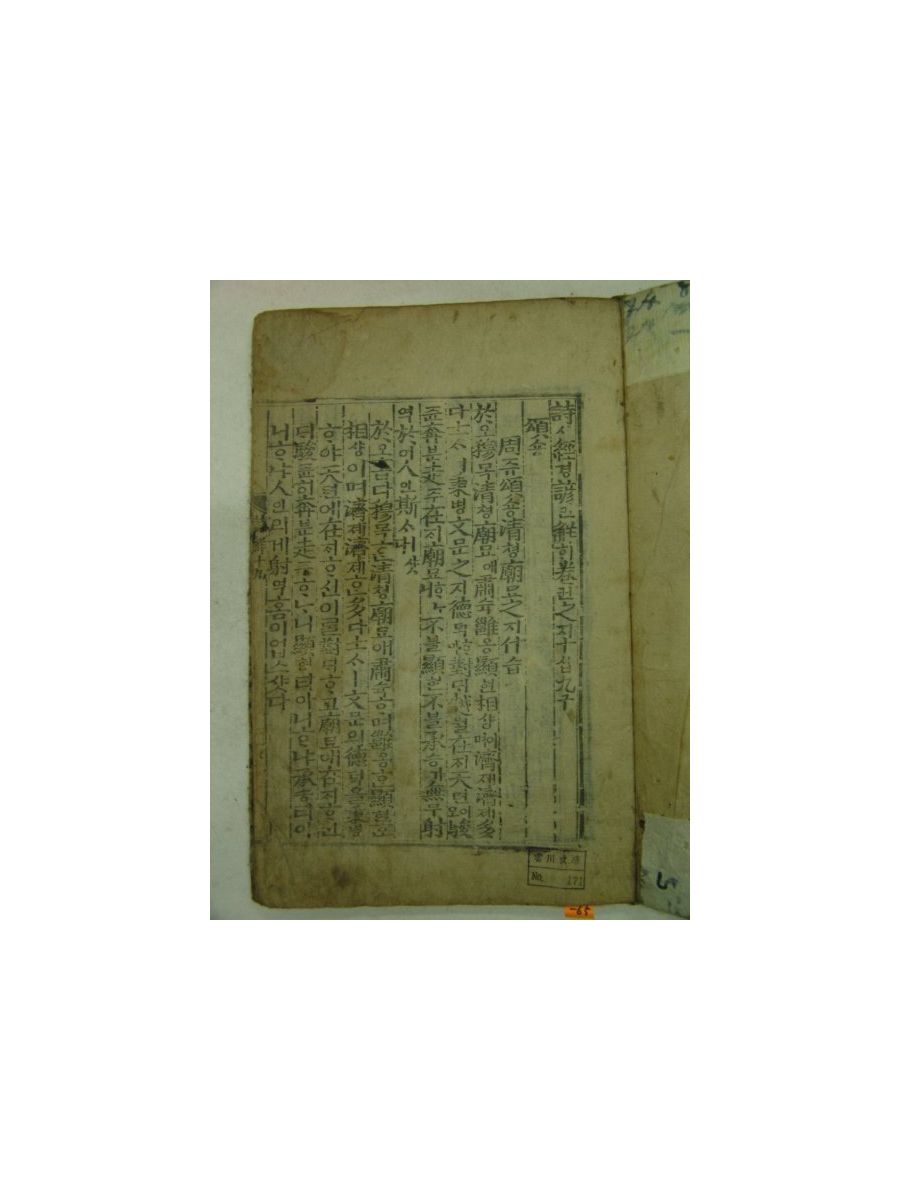 詩시經경諺언解ᄒᆡ卷권之지十십九구
頌숑
周쥬頌숑淸쳥廟묘之지什습
於오穆목淸쳥廟묘애肅슉雝옹顯현相샹이며濟졔濟졔多
다士ᄉᆞㅣ秉병文문之지德덕ᄒᆞ야對ᄃᆡ越월在ᄌᆡ天텬이오駿
쥰奔분走주在ᄌᆡ廟묘ᄒᆞᄂᆞ니不블顯현不블承승가無무射
역於어人인斯ᄉᆞ샷다
於오홉다穆목ᄒᆞᆫ淸쳥廟묘애肅슉ᄒᆞ며雝옹ᄒᆞᆫ顯현ᄒᆞᆫ
相샹이며濟졔濟졔ᄒᆞᆫ多다士ᄉᆞㅣ文문의德덕을秉병
ᄒᆞ야天텬에在ᄌᆡᄒᆞ신이ᄅᆞᆯ對ᄃᆡᄒᆞ고廟묘애
駿쥰히奔분走주ᄒᆞᄂᆞ니顯현티아닌ᄂᆞ냐承승티아
니ᄒᆞ냐人인의게射역홈이업스샷다
No. 171
-65